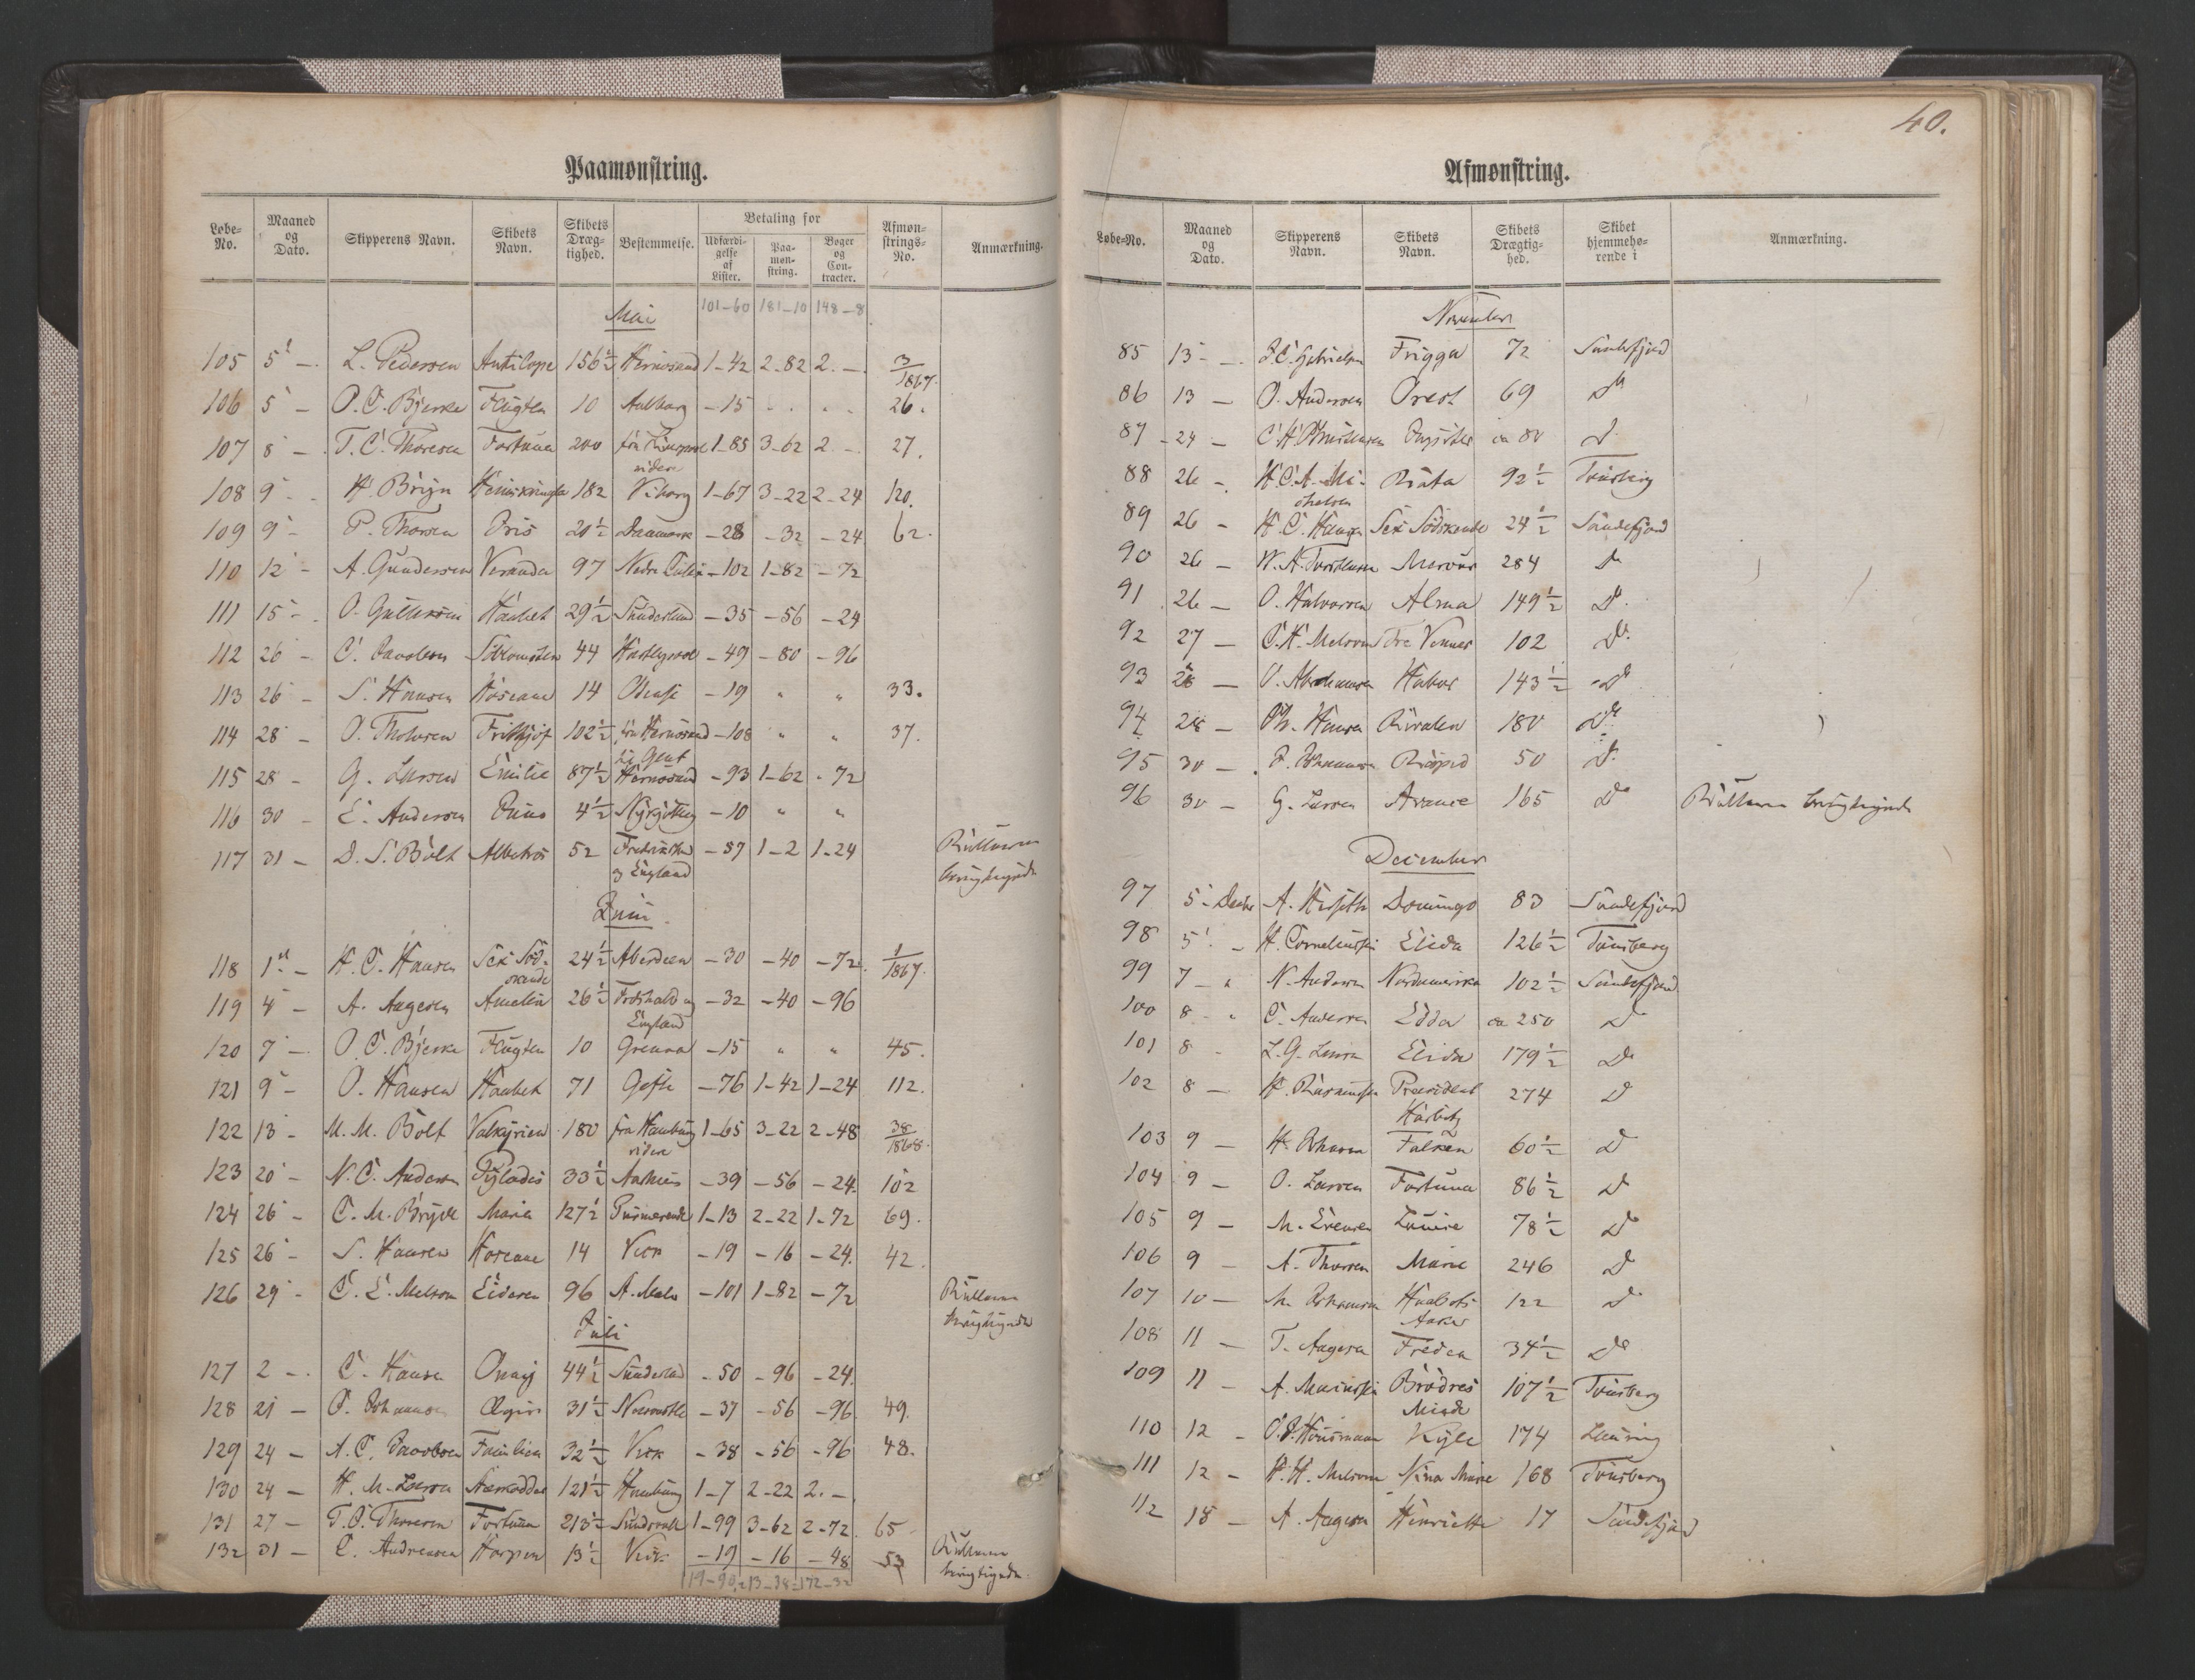 Paamønstring.
Løbe-No. Maaned og Dato. Skipperens Navn. Skibets Navn. Skibets Dræg-tighed. Bestemmelse. Betaling for Udfærdi-gelse af Lister. Paa-møn-string. Bøger og Con-tracter. Afmøn-strings-No. Anmærkning.
Mai 101-60 181-10 148-8
105 5t - L. Pedersen Antilope 156½ Hernøsand 1-42 2-82 2. - 3/1867.
106 5 - O. C. Bjerke Flugten 10 Aalborg - 15 . . . . 26.
107 8 - T. C. Thoresen Fortuna 200 fra videre 1-85 3-62 2 - 27.
108 9 - H. Bryn Heimskringla 182 Viborg 1-67 3-22 2-24 120.
109 9 - P. Thorsen Iris 20½ Danmark - 28 - 32 - 24 62.
110 12 - A. Gundersen Veranda 97 Nedre - 102 1-82 - 72
111 15 - O. Haabet 29½ Sunderland - 35 - 56 - 24
112 26 - C. Jacobsen 44 Hartlepool - 49 - 80 - 96
113 26 - S. Hansen Hoseane 14 Odense - 19 " " 33.
114 28 - O. Tholvsen Frithjof 102½ fra Hernøsand til Gent - 108 " " 37.
115 28 - G. Larsen Emilie 87½ Hernøsand - 93 1-62 - 72
116 30 - E. Andersen Juno 4½ - 10 " "
117 31 - D. S. Bolt Albatros 52 og England - 57 1-2 1-24 Rullerne
Juni
118 1st - H. C. Hansen Sex Sød-skende 24½ Aberdeen - 30 - 40 - 72. 1/1867.
119 4 - A. Aagesen Amelia 26½ Fredrikshald og England - 32 - 40 - 96
120 7 - O. C. Bjerke Flugten 10 Grenaa - 15 " " 45.
121 9 - O. Hansen Haabet 71 Gefle - 76 1-42 1-24 112.
122 13 - M. M. Bolt Valkyrien 180 fra Hamburg videre 1-65 3-22 2-48 38/1868.
123 20 - N. C. Andersen Pylades 33½ Aarhuus - 39 - 56 - 24. 102
124 26 - C. M. Bryde Maria 127½ Purmerende 1-13 2-22 1-72 69.
125 26 - S. Hansen Hoseane 14 Vick - 19 - 16 - 24. 42.
126 29 - C. E. Melsom Eideren 96 - 101 1-82 - 72 Rullerne
Juli
127 2 - C. Hansen 44½ Sunderland - 50 - 96 - 24.
128 21 - O. Johannsen Ægir 31½ Newcastle - 37 - 56 - 96. 49.
129 24 - A. C. Jacobsen Familien 32½ Vick - 38 - 56 - 96 48.
130 24 - H. M. Larsen 121½ Hamburg 1-7 2-22 2. -
131 27 - T. C. Thoresen Fortuna 213½ Sundsvall 1-99 3-62 2-72. 65
132 31 - C. Andreasen Harpen 13½ Vick - 19 - 16 - 48 53 Rullerne
40.
Afmønstring.
Løbe-No. Maaned og Dato. Skipperens Navn. Skibets Navn. Skibets Drægtig-hed. Skibet hjemmehø-rende i Anmærkning.
November
85 13 - J. C. Gabrielsen Frigga 72 Sandefjord
86 13 - O. Andersen Orest 69 Do
87 - 24 - C. H. ca 80 Do
88 26 - H. C. A. Mi-chelsen Rota 92½ Tønsberg
89 26 - H. C. Hansen Sex Södskende 24½ Sandefjord
90 26 - N. A. Torstensen Mercur 284 Do
91 26 - O. Halvorsen Alma 149½ Do
92 27 - C. H. Melsom Tre Venner 102 Do
93 28 - O. Abrahamsen Habor 143½ Do
94 28 - Hansen Rivalen 180 Do
95 30 - P. Johannsen 50 Do
96 30 - G. Larsen Avance 165 Do Rullerne
December
97 5 - Decbr A. Domingo 83 Sandefjord
98 5 - H. Corneliussen Elida 126½ Tønsberg
99 7 - " N. Andersen Nordamerika 102½ Sandefjord
100 8 - " C. Andersen Edda ca 250 Do
101 8 - L. G. Larsen Elida 179½ Do
102 8 - H. Rasmussen Præsident Harbitz 274 Do
103 9 - H. Johansen Falken 60½ Do
104 9 - O. Larsen Fortuna 86½ Do
105 9 - M. Evensen Louise 78½ Do
106 9 - A. Thorsen Marie 246 Do
107 10 - M. Johannsen Haabets Anker 122 Do
108 11 - T. Aagesen Freden 34½ Do
109 11 - A. Mariussen Brødres Minde 107½ Tønsberg
110 12 - 174 Laurvig
111 12 - H. H. Melsom Nina Marie 168 Tønsberg
112 18 - A. Aagesen Henriette 17 Sandefjord